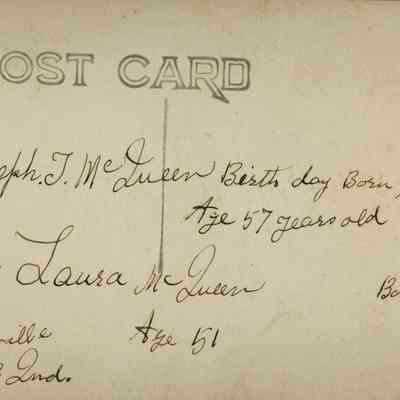 OST CARD
eph. T. McQueen Birth day Born
Age 57 years old
Laura McQueen Bo
ville Age 51
Ind.